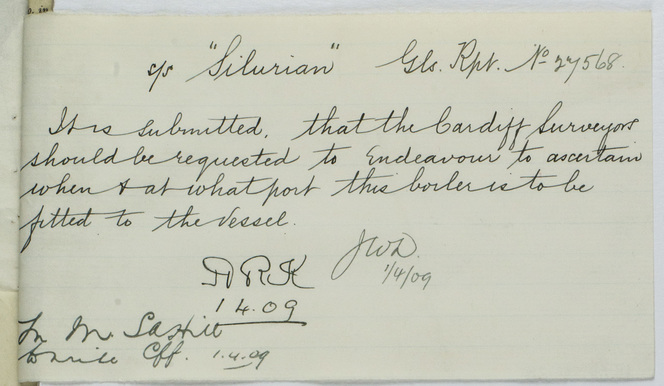 s/s "Silurian" Gls. Rpt. No 27568.
It is submitted, that the Cardiff Surveyors
should be requested to Endeavour to ascertain
when & at what port this boiler is to be
fitted to the Vessel.
JWD
1/4/09
HRK
1 4.09
Mr
to write Cff. 1.4.09